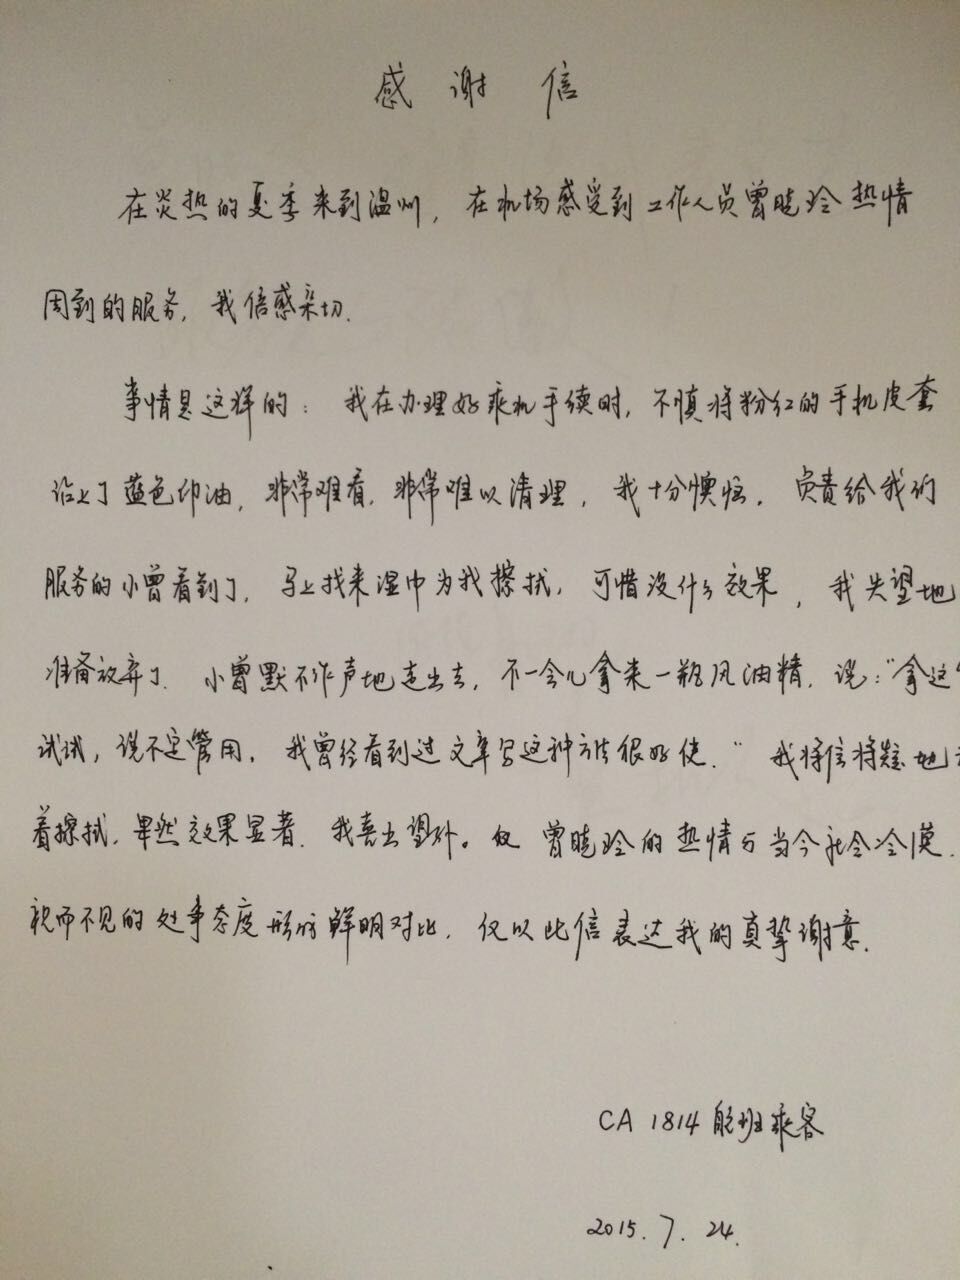 感谢信
在炎热的夏季来到温州，在机场感受到工作人员曾晓玲热情
周到的服务，我倍感亲切.
事情是这样的：我在办理好乘机手续时，不慎将粉红的手机皮套
沾上了蓝色印油，非常难看，非常难以清理，我十分懊恼，负责给我们
服务的小曾看到了，马上找来湿巾为我擦拭，可惜没什么效果，我失望地
准备放弃了. 小曾默不作声地走出去，不一会儿拿来一瓶风油精，说：“拿这
试试，说不定管用，我曾经看到过文章写这种方法很好使.” 我将信将疑地
着擦拭，果然效果显著. 我喜出望外。仅 曾晓玲的热情与当今社会冷漠.
视而不见的处事态度形成鲜明对比，仅以此信表达我的真挚谢意.
CA 1814 航班乘客
2015.7.24.